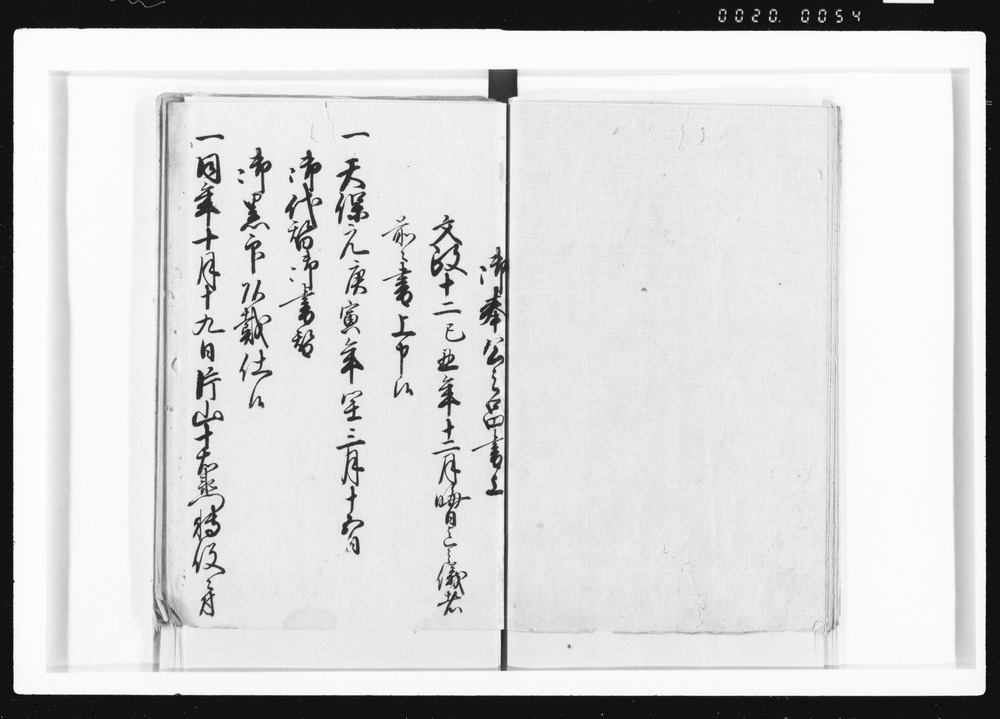 0020. 0054
御奉公之品書上
文政十二己丑年十二月晦日迄之儀者
前々書上申候
一天保元庚寅年閏三月十五日
御代替御書替
御黒印頂戴仕候
一同年十月十九日片山十右衛門